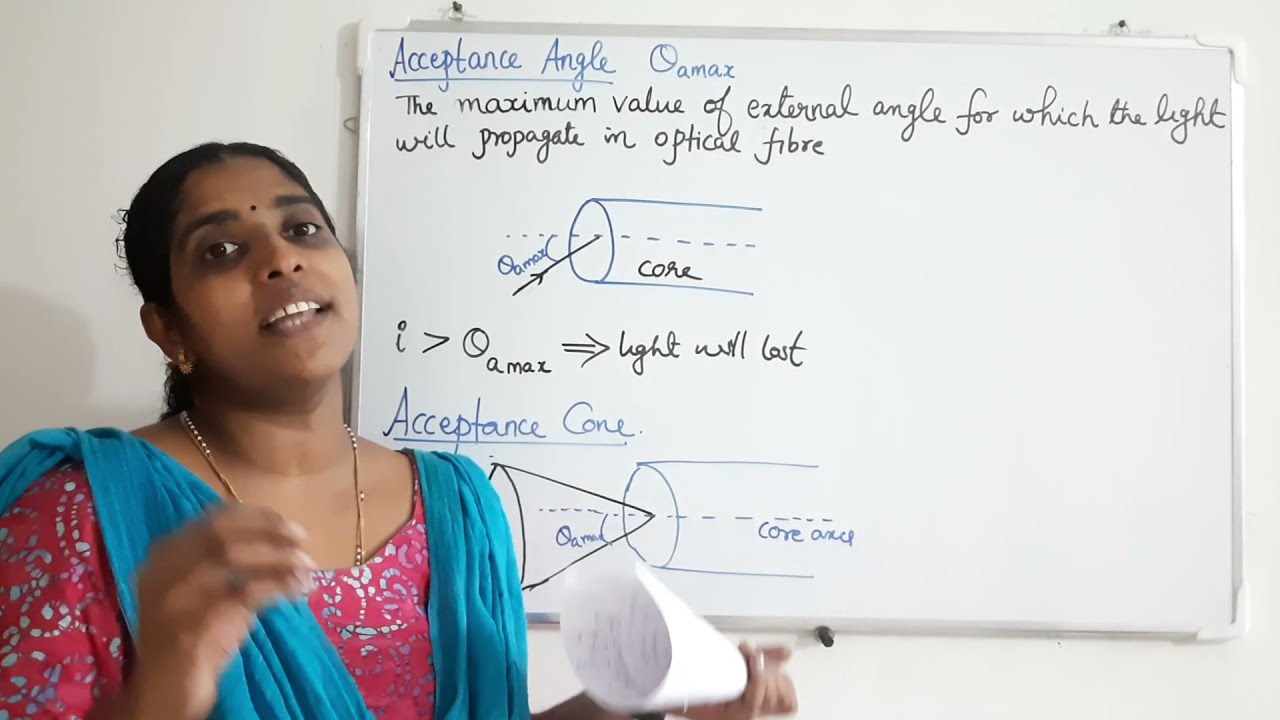 Acceptance Angle θamax
The maximum value of external angle for which the light
will propagate in optical fibre
θamax
core
i > θamax ⇒ light will lost
Acceptance Cone.
θamax
core axis